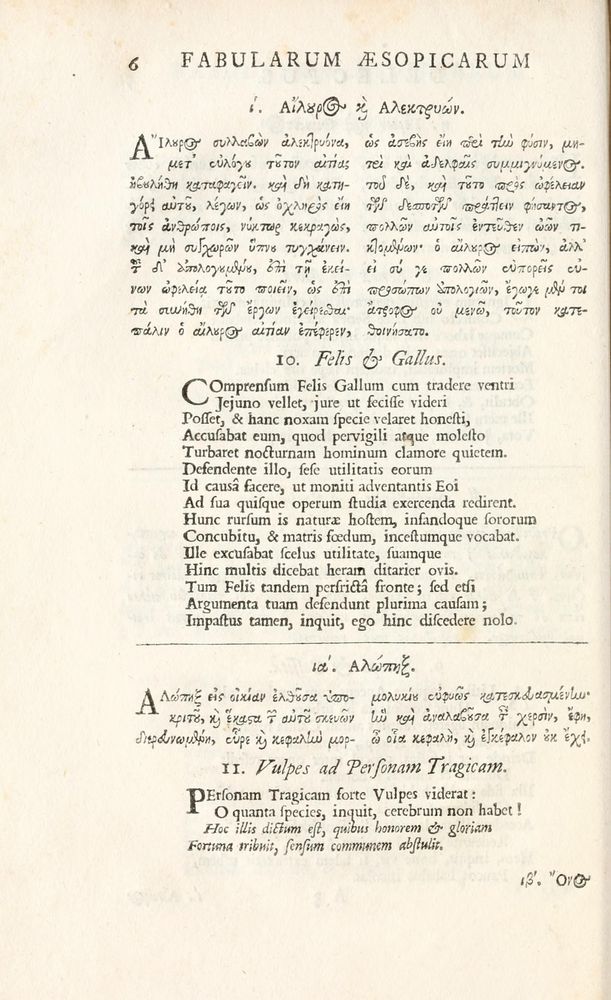 6 FABULARUM ÆSOPICARUM
ί. Αἴλουρος καὶ Ἀλεκτρυών.
ΑἼλουρος συλλαβὼν ἀλεκτρυόνα,
μετ' εὐλόγου τοῦτον αἰτίας
ἠβουλήθη καταφαγεῖν. καὶ δὴ κατη-
γόρει αὐτοῦ, λέγων, ὡς ὀχληρὸς εἴη
τοῖς ἀνθρώποις, νύκτωρ κεκραγὼς,
καὶ μὴ συγχωρῶν ὕπνου τυγχάνειν.
τοῦ δ' ἀπολογουμένου, ἐπὶ τῇ ἐκεί-
νων ὠφελείᾳ τοῦτο ποιεῖν, ὡς ἐπὶ
τὰ συνήθη τῶν ἔργων ἐγείρεσθαι·
πάλιν ὁ αἴλουρος αἰτίαν ἐπέφερεν,
ὡς ἀσεβὴς εἴη περὶ τὴν φύσιν, μη-
τρὶ καὶ ἀδελφαῖς συμμιγνύμενος.
τοῦ δὲ, καὶ τοῦτο πρὸς ὠφέλειαν
τῶν δεσποτῶν πράττειν φήσαντος,
πολλῶν αὐτοῖς ἐντεῦθεν ὠῶν τι-
κτομένων· ὁ αἴλουρος εἰπὼν, ἀλλ'
εἰ σύ γε πολλῶν εὐπορεῖς εὐ-
προσώπων ἀπολογιῶν, ἔγωγε μέν τοι
ἄτροφος οὐ μενῶ, τοῦτον κατε-
θοινήσατο.
10. Felis & Gallus.
COmprensum Felis Gallum cum tradere ventri
Jejuno vellet, jure ut fecisse videri
Posset, & hanc noxam specie velaret honesti,
Accusabat eum, quod pervigili atque molesto
Turbaret nocturnam hominum clamore quietem.
Defendente illo, sese utilitatis eorum
Id causâ facere, ut moniti adventantis Eoi
Ad sua quisque operum studia exercenda redirent.
Hunc rursum is naturæ hostem, infandoque sororum
Concubitu, & matris fœdum, incestumque vocabat.
Ille excusabat scelus utilitate, suamque
Hinc multis dicebat heram ditarier ovis.
Tum Felis tandem perfrictâ fronte; sed etsi
Argumenta tuam defendunt plurima causam;
Impastus tamen, inquit, ego hinc discedere nolo.
ια. Ἀλώπηξ.
ΑΛώπηξ εἰς οἰκίαν ἐλθοῦσα ὑπο-
κριτοῦ, καὶ ἕκαστα τῶν αὐτοῦ σκευῶν
διερευνωμένη, εὗρε καὶ κεφαλὴν μορ-
μολυκίου εὐφυῶς κατεσκευασμένην·
ἣν καὶ ἀναλαβοῦσα ταῖς χερσὶν, ἔφη,
ὢ οἵα κεφαλὴ, καὶ ἐγκέφαλον οὐκ ἔχει.
11. Vulpes ad Personam Tragicam.
PErsonam Tragicam forte Vulpes viderat:
O quanta species, inquit, cerebrum non habet!
Hoc illis dictum est, quibus honorem & gloriam
Fortuna tribuit, sensum communem abstulit.
ιβ'. Ὄνος